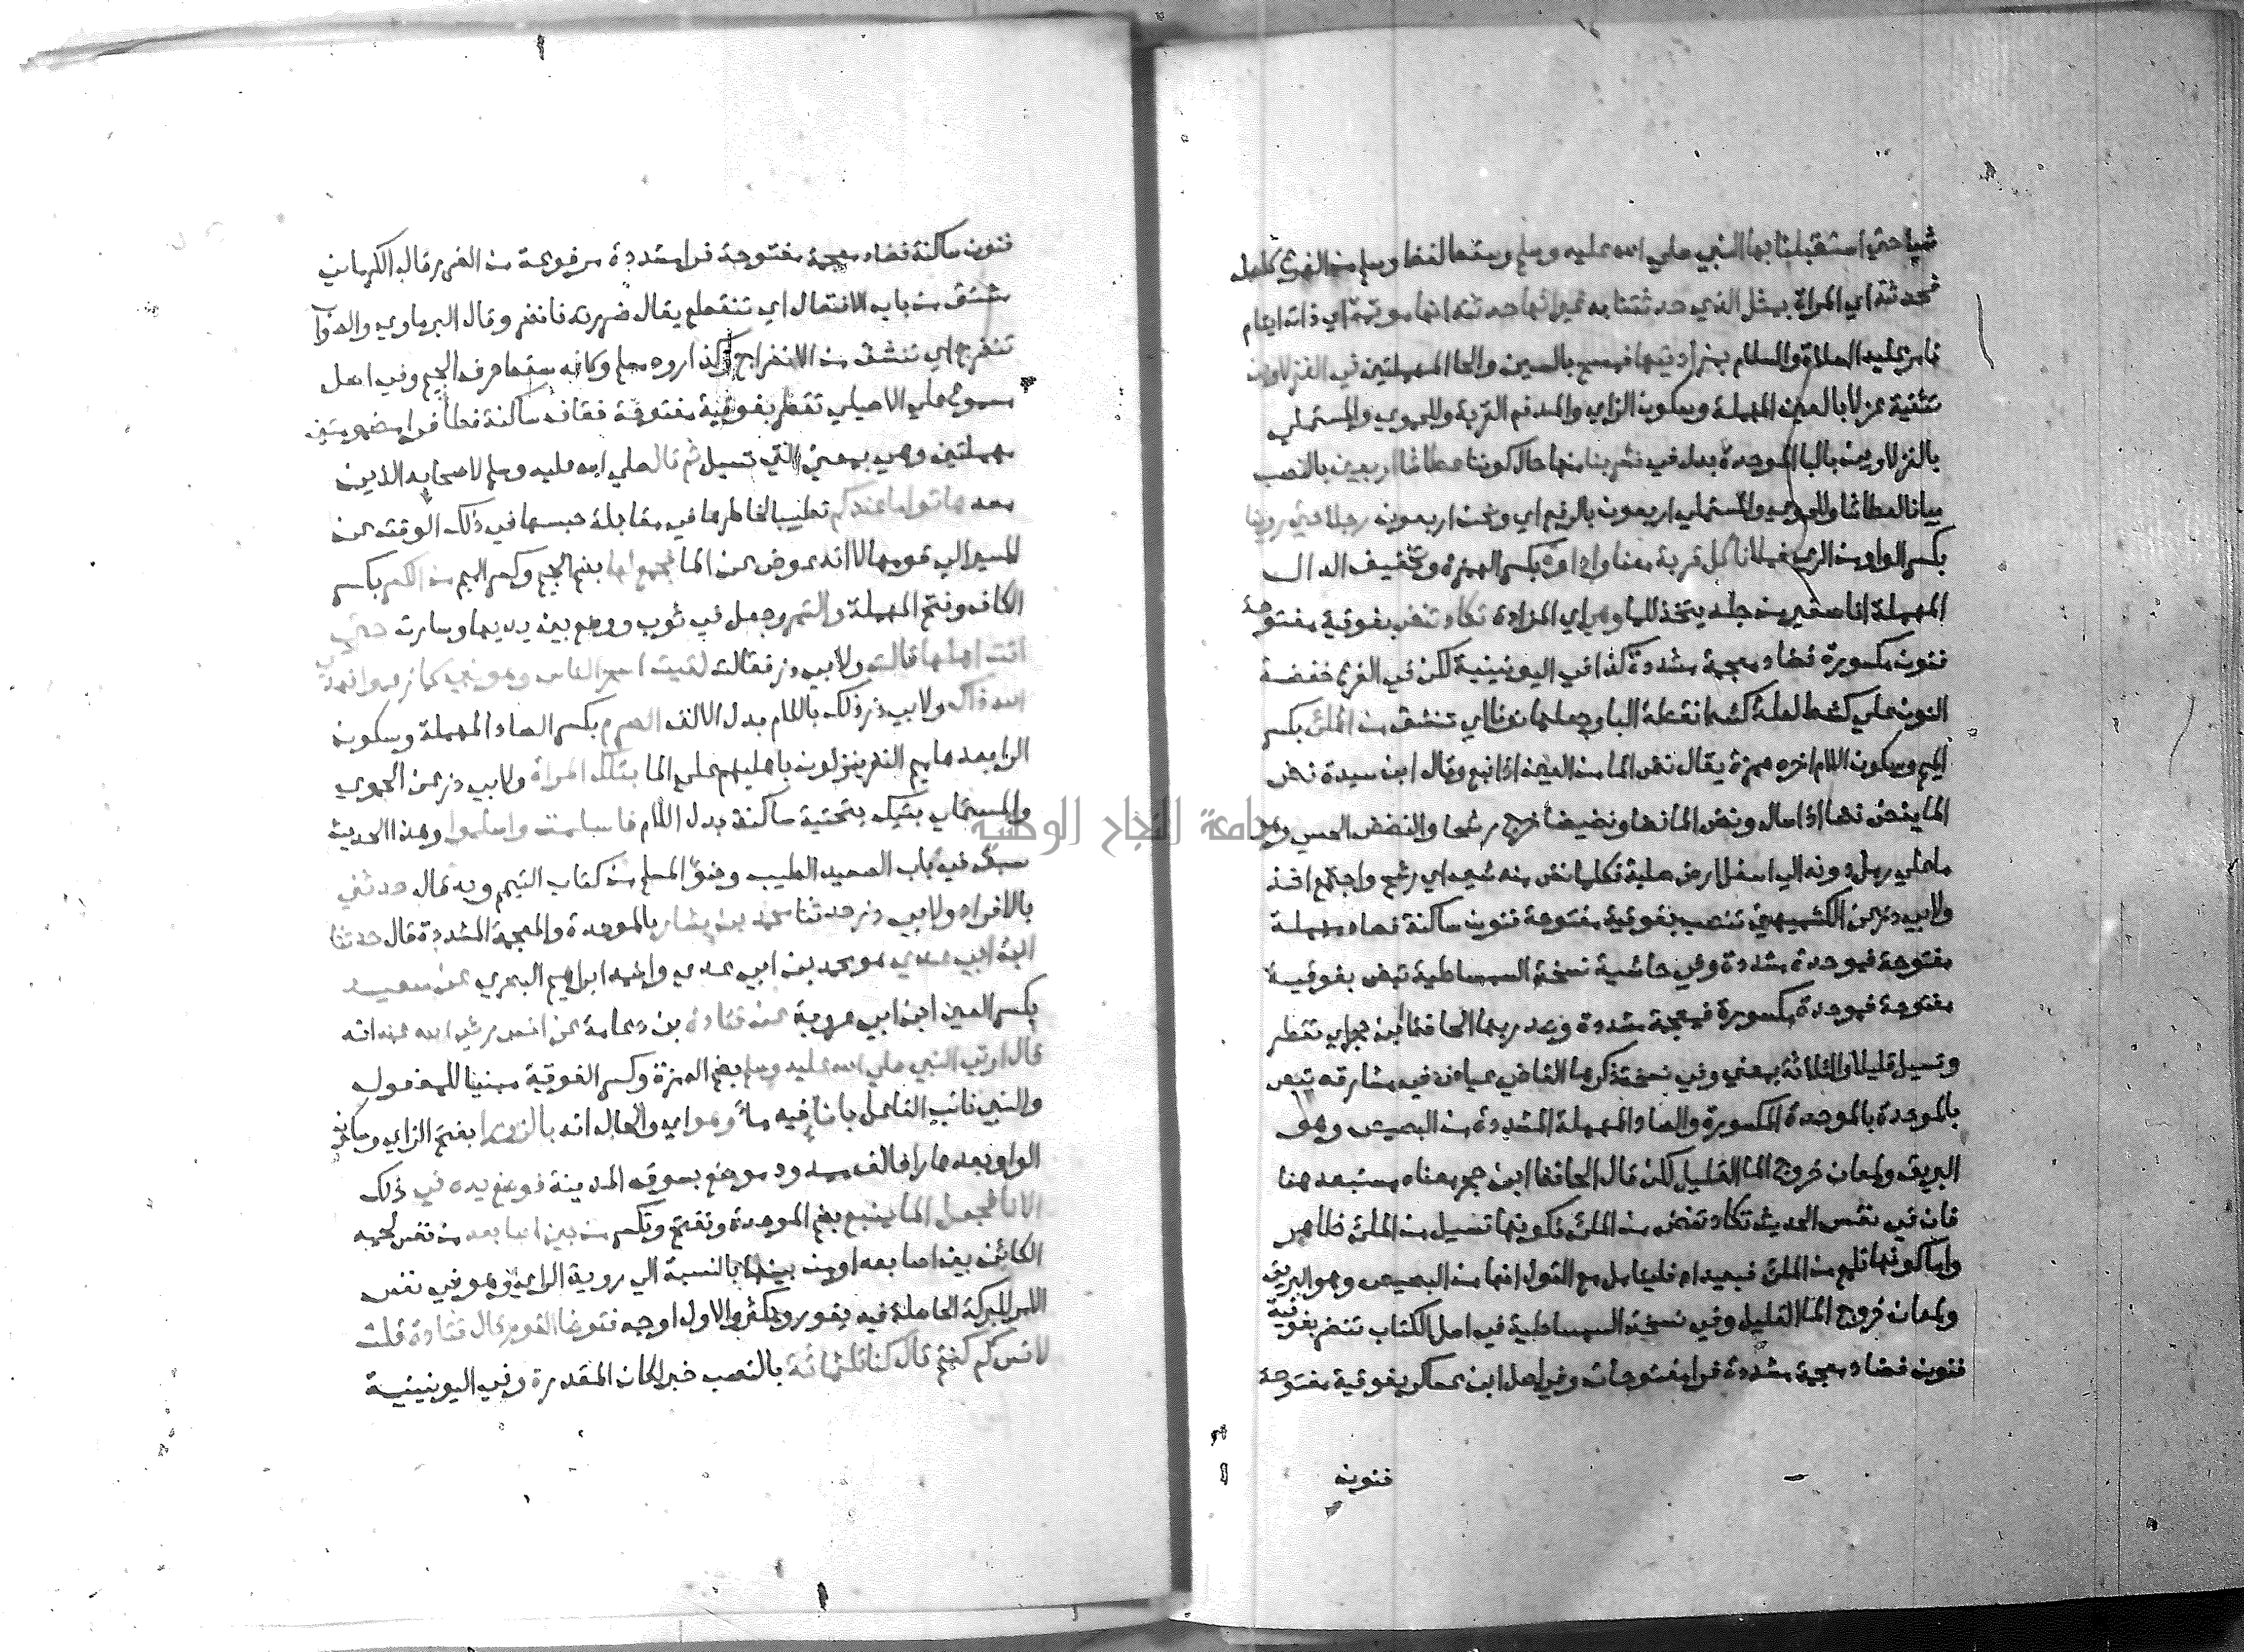 شيا حتي استقبلنا بها النبي صلي الله عليه وسلم وسقط لفظ وسلم من الفرع كاصل
فحدثته اي المراة بمثل الذي حدثتنا به غير انها حدثته انها موتمة اي ذات ايتام
فامر عليه الصلاة والسلام بمزادتيها فمسح بالسين والحا المهملتين في العزلاوين
تثنية عزلا بالعين المهملة وسكون الزاي والمد فم القربة وللحموي والمستملي
بالعزلاوين بالبا الموحدة بدل في فشربنا منها حال كوننا عطاشا اربعين بالنصب
بيانا لعطاشا وللحموي والمستملي اربعون بالرفع اي ونحن اربعون رجلا حتي روينا
بكسر الواو من الري فملانا كل قربة معنا واداوة بكسر الهمزة وتخفيف الدال
المهملة انا صغير من جلد يتخذ للما وهي اي المزادة تكاد تنض بفوقية مفتوحة
فنون مكسورة فضاد معجمة مشددة كذا في اليونينية لكن في الفرع خفضة
النون علي كشط لعله كشط نقطة البا وجعلها نونا اي تنشق من الملئ بكسر
الميم وسكون اللام اخره همزة يقال نض الما من العين اذا نبع وقال ابن سيدة نض
الما ينض نضا اذا سال ونض الما نضا ونضيضا خرج رشحا والنضض الحسي وهو
ما علي رمل دونه الي اسفل ارض صلبة فكلما نض منه شي اي رشح واجتمع اخذ
ولابي ذر عن الكشميهني تنصب بفوقية مفتوحة فنون ساكنة فصاد مهملة
مفتوحة فموحدة مشددة وفي حاشية نسخة السميساطية تبض بفوقية
مفتوحة فموحدة مكسورة فمعجمة مشددة وعد ربها الحافظ ابن حجر اي تقطر
وتسيل قليلا والثلاثة بمعني وفي نسخة ذكرها القاضي عياض في مشارقه تبص
بالموحدة بالموحدة المكسورة والصاد المهملة المشددة من البصيص وهو
البريق ولمعان خروج الما القليل لكن قال الحافظ ابن حجر معناه مستبعد هنا
فان في نفس الحديث تكاد تنض من الملئ فكونها تسيل من الملئ ظاهر
واما كونها تلمع من الملئ فبعيد اه فليتامل مع القول انها من البصيص وهو البريق
ولمعان خروج الما القليل وفي نسخة السميساطية في اصل الكتاب تنضر بفوقية
فنون فضاد معجمة مشددة فرا مفتوحات وفي اصل ابن عساكر بفوقية مفتوحة
فنون
فنون ساكنة فضاد معجمة مفتوحة فرا مشددة مرفوعة من الضرر قال الكرماني
مشتق من باب الانفعال اي تنقطع يقال ضررته فانضر وقال البرماوي والصواب
تنفرج اي تنشق من الانفراج وكذا رواه مسلم وكانه سقط حرف الجيم وفي اصل
مسموع علي الاصيلي تقطر بفوقية مفتوحة فقاف ساكنة فطا فرا مضمومتين
مهملتين وهي بمعني التي تسيل ثم قال صلي الله عليه وسلم لاصحابه الذين
معه هاتوا ما عندكم تطييبا لخاطرها في مقابلة حبسها في ذلك الوقت عن
المسير الي قومها لا انه عوض عن الما فجمع لها بضم الجيم وكسر الميم من الكسر بكسر
الكاف وفتح المهملة والتمر وجعل في ثوب ووضع بين يديها وسارت حتي
اتت اهلها قالت ولابي ذر فقالت لقيت اسحر الناس وهو نبي كما زعموا فهدي
الله ذاك ولابي ذر ذلك باللام بدل الالف الصرم بكسر الصاد المهملة وسكون
الرا بعدها ميم النفر ينزلون باهليهم علي الما بتلك المراة ولابي ذر عن الحموي
والمستملي بتيك بتحتية ساكنة بدل اللام فاسلمت واسلموا وهذا الحديث
سبق في باب الصعيد الطيب وضو المسلم من كتاب التيمم وبه قال حدثني
بالافراد ولابي ذر حدثنا محمد بن بشار بالموحدة والمعجمة المشددة قال حدثنا
ابن ابي عدي هو محمد بن ابي عدي واسمه ابراهيم البصري عن سعيد
بكسر العين ابن ابي عروبة عن قتادة بن دعامة عن انس رضي الله عنه انه
قال اوتي النبي صلي الله عليه وسلم بضم الهمزة وكسر الفوقية مبنيا للمفعول
والنبي نائب الفاعل باناء فيه ماء وهو اي والحال انه بالزورا بفتح الزاي وسكون
الواو بعدها را فالف ممدود موضع بسوق المدينة فوضع يده في ذلك
الانا فجعل الما ينبع بضم الموحدة وتفتح وتكسر من بين اصابعه من نفس لحمه
الكائن بين اصابعه او من بينها بالنسبة الي روية الرايي وهو في نفس
الامر للبركة الحاصلة فيه يفور ويكثر والاول اوجه فتوضا القوم قال قتادة قلت
لانس كم كنتم قال كنا ثلثمائة بالنصب خبر لكان المقدرة وفي اليونينية
جامعة النجاح الوطنية